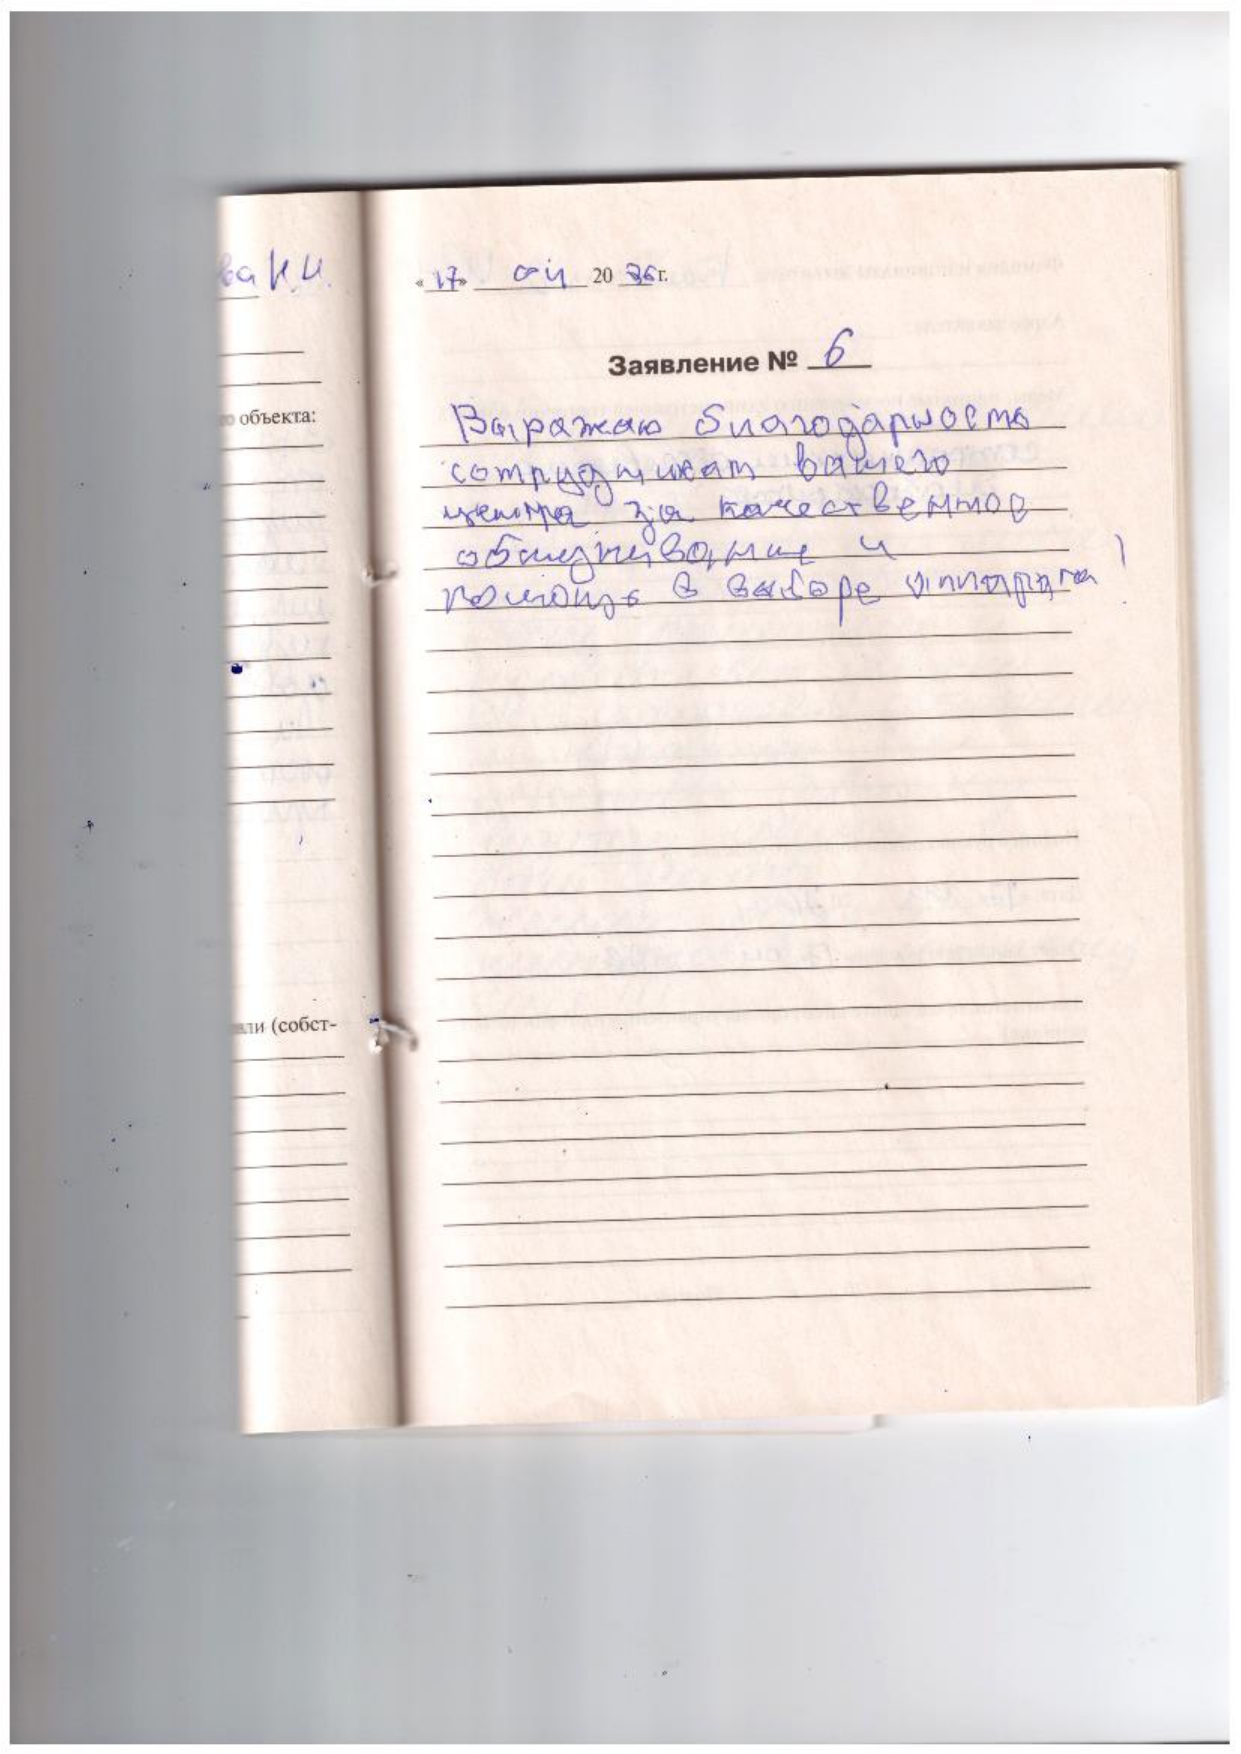 ва И.И.
объекта:
али (собст-
«17» 04 20 г.
Заявление № 6
Выражаю благодарность
сотрудникам вашего
центра за качественное
обслуживание и
помощь в выборе аппарата!